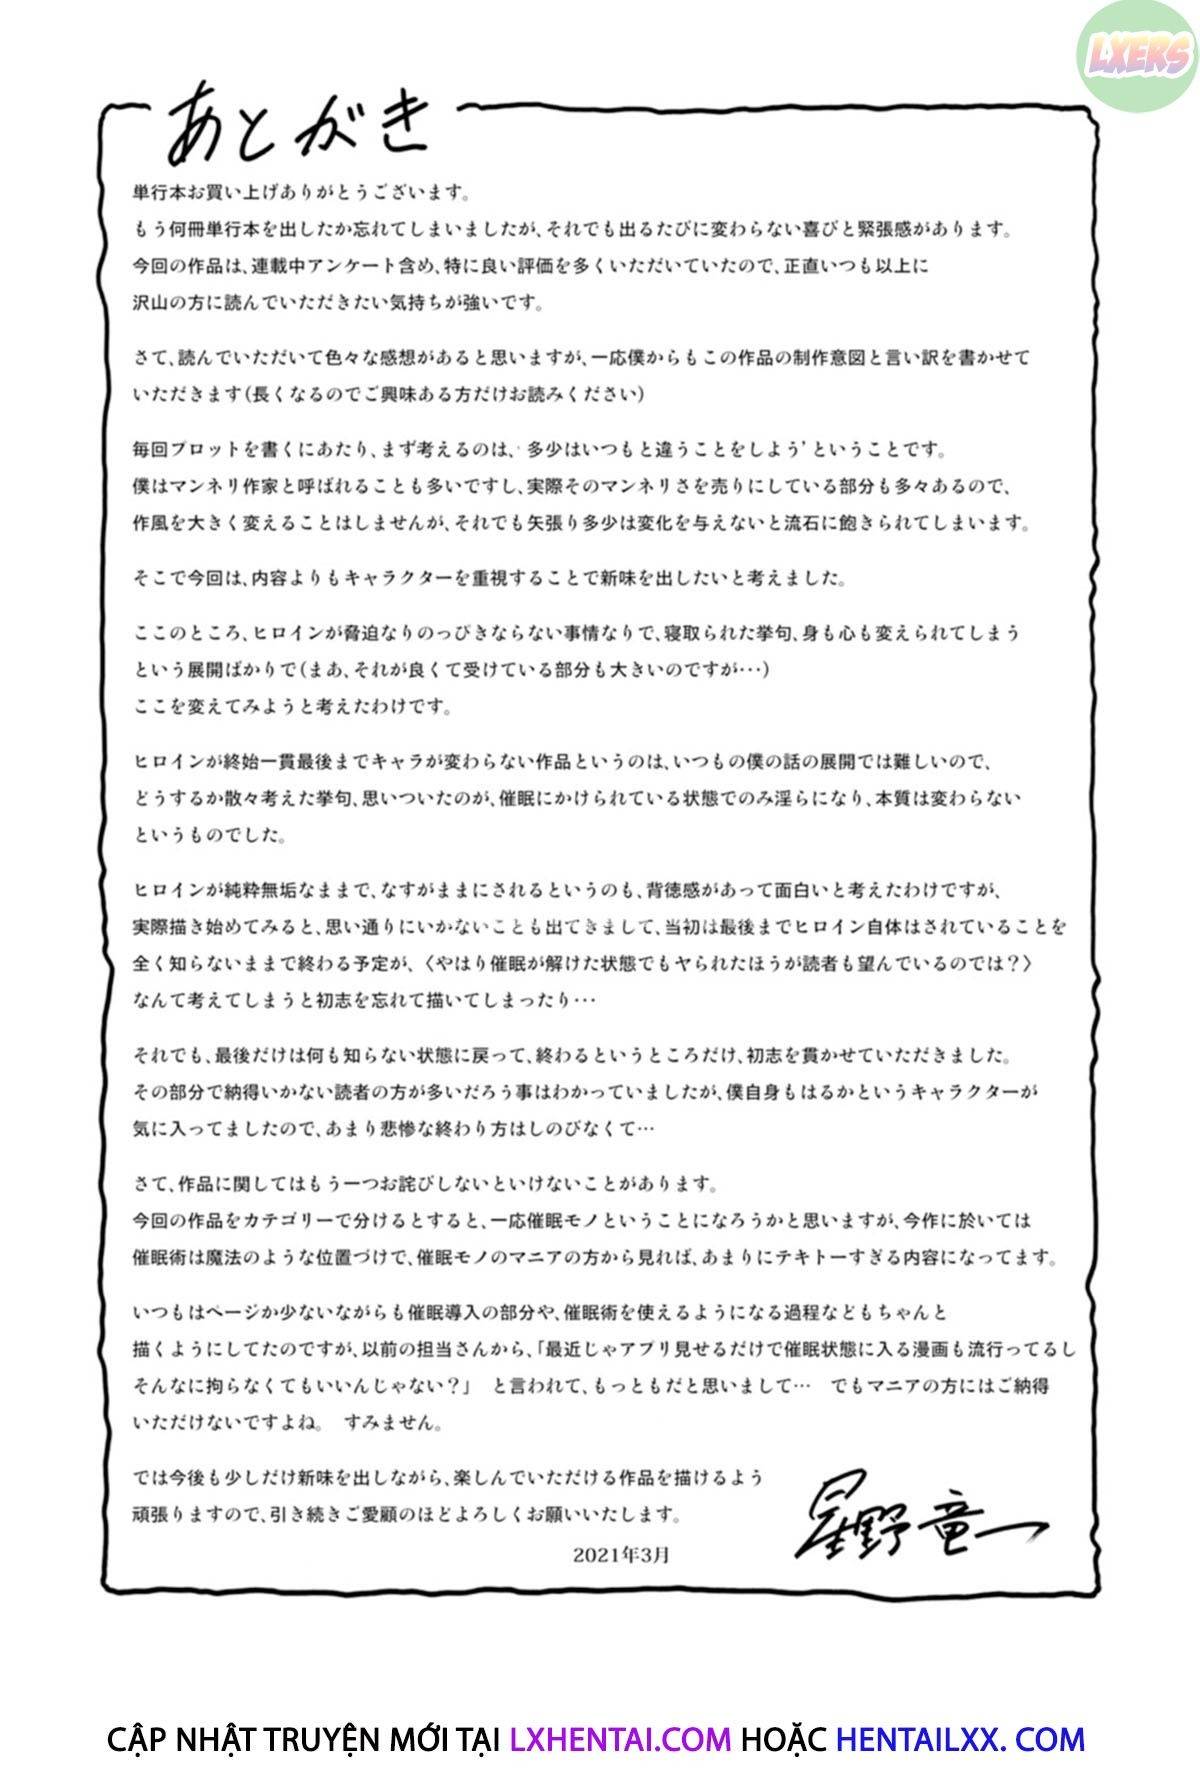 LXERS
あとがき
単行本お買い上げありがとうございます。
もう何冊単行本を出したか忘れてしまいましたが、それでも出るたびに変わらない喜びと緊張感があります。
今回の作品は、連載中アンケート含め、特に良い評価を多くいただいていたので、正直いつも以上に
沢山の方に読んでいただきたい気持ちが強いです。
さて、読んでいただいて色々な感想があると思いますが、一応僕からもこの作品の制作意図と言い訳を書かせて
いただきます(長くなるのでご興味ある方だけお読みください)
毎回プロットを書くにあたり、まず考えるのは、‘多少はいつもと違うことをしよう’ということです。
僕はマンネリ作家と呼ばれることも多いですし、実際そのマンネリさを売りにしている部分も多々あるので、
作風を大きく変えることはしませんが、それでも矢張り多少は変化を与えないと流石に飽きられてしまいます。
そこで今回は、内容よりもキャラクターを重視することで新味を出したいと考えました。
ここのところ、ヒロインが脅迫なりのっぴきならない事情なりで、寝取られた挙句、身も心も変えられてしまう
という展開ばかりで(まあ、それが良くて受けている部分も大きいのですが･･･)
ここを変えてみようと考えたわけです。
ヒロインが終始一貫最後までキャラが変わらない作品というのは、いつもの僕の話の展開では難しいので、
どうするか散々考えた挙句、思いついたのが、催眠にかけられている状態でのみ淫らになり、本質は変わらない
というものでした。
ヒロインが純粋無垢なままで、なすがままにされるというのも、背徳感があって面白いと考えたわけですが、
実際描き始めてみると、思い通りにいかないことも出てきまして、当初は最後までヒロイン自体はされていることを
全く知らないままで終わる予定が、〈やはり催眠が解けた状態でもヤられたほうが読者も望んでいるのでは？〉
なんて考えてしまうと初志を忘れて描いてしまったり･･･
それでも、最後だけは何も知らない状態に戻って、終わるというところだけ、初志を貫かせていただきました。
その部分で納得いかない読者の方が多いだろう事はわかっていましたが、僕自身もはるかというキャラクターが
気に入ってましたので、あまり悲惨な終わり方はしのびなくて…
さて、作品に関してはもう一つお詫びしないといけないことがあります。
今回の作品をカテゴリーで分けるとすると、一応催眠モノということになろうかと思いますが、今作に於いては
催眠術は魔法のような位置づけで、催眠モノのマニアの方から見れば、あまりにテキトーすぎる内容になってます。
いつもはページか少ないながらも催眠導入の部分や、催眠術を使えるようになる過程などもちゃんと
描くようにしてたのですが、以前の担当さんから、「最近じゃアプリ見せるだけで催眠状態に入る漫画も流行ってるし
そんなに拘らなくてもいいんじゃない？」　と言われて、もっともだと思いまして…　でもマニアの方にはご納得
いただけないですよね。　すみません。
では今後も少しだけ新味を出しながら、楽しんでいただける作品を描けるよう
頑張りますので、引き続きご愛顧のほどよろしくお願いいたします。
2021年3月
星野竜一
CẬP NHẬT TRUYỆN MỚI TẠI LXHENTAI.COM HOẶC HENTAILXX. COM